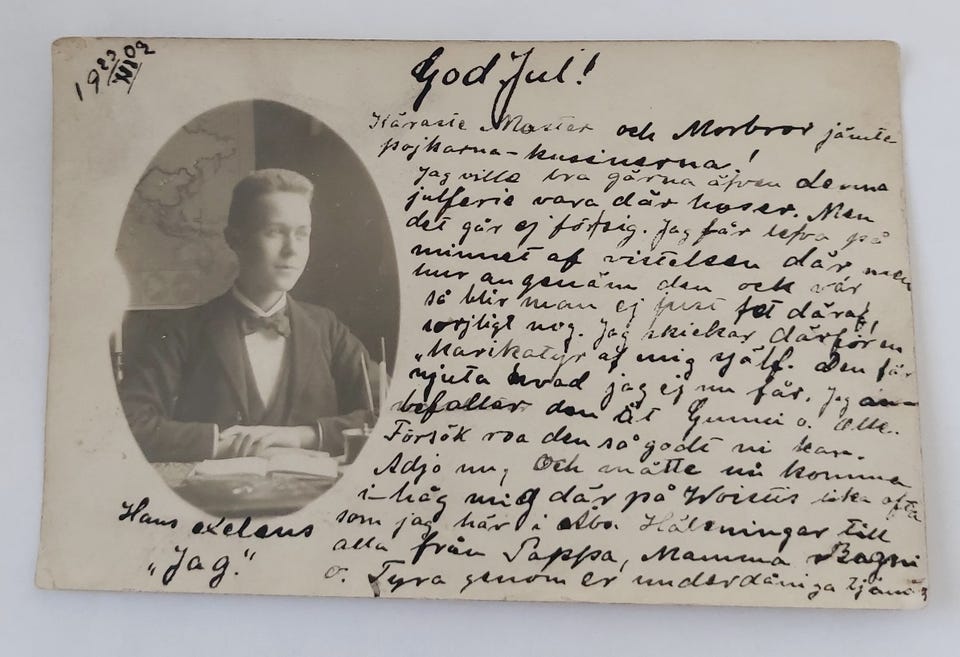 19 23/XII 02
God Jul!
Käraste Moster och Morbror jämte
pojkarna-kusinerna!
Jag ville bra gärna äfven denna
julferie vara där hos er. Men
det går ej för sig. Jag får lefva på
minnet af vistelsen där men
hur angenäm den ock var
så blir man ej just fet däraf!
sorjligt nog. Jag skickar därför en
"karikatyr af mig själf. Den får
njuta hvad jag ej nu får. Jag an-
befaller den åt Gunni o. Olle.
Försök roa den så godt ni kan.
Adjö nu, Och måtte ni komma
i-håg mig där på lika ofta
som jag här i Åbo Hälsningar till
alla från Pappa, Mamma Ragni
o. Tyra genom er underdåniga
Hans
"Jag."